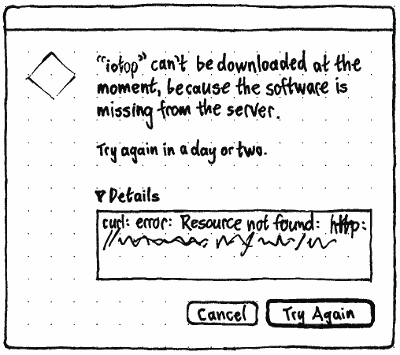 "iotop" can't be downloaded at the
moment, because the software is
missing from the server.
Try again in a day or two.
▼ Details
curl: error: Resource not found: http:
//
Cancel
Try Again